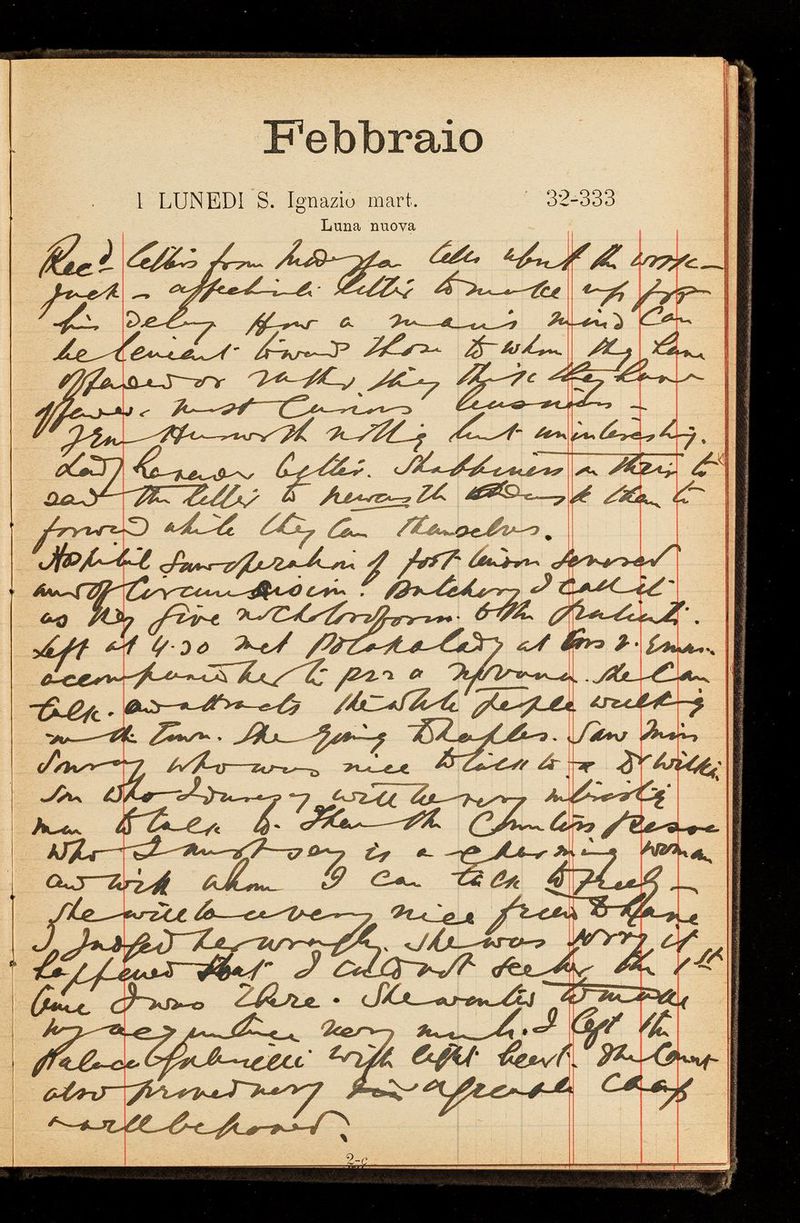 Febbraio
1 LUNEDI S. Ignazio mart. 32-333
Luna nuova
Recd letters from tells about the work
Jack affectionate letter to make up for
his delay How a man's mind can
be lenient towards those to whom they have
offended or rather they think they have
most curious business
nothing but uninteresting.
Lady better. Shabbiness on their to
the letter to than to
forward while they can themselves.
Hospital Saw operation of foot tendon severed
and of Circumcision. Butchery I call it
as they give no chloroform to the patients.
Left at 4.30 met lady at
accompanied her to She can
talk. and attracts the whole people walking
in the Town. She going to Naples. Saw Miss
who was nice to talk to Dr Wilkin
son who I will be very interesting
man to talk to. Then the Countess
who I must say is a charming woman
and with whom I can talk freely
She will be a very nice friend to have
I judged her wrongly. She was sorry it
happened that I could not see her the 1st
time I was there. She wanted to make
my acquaintance very much. I left the
Palace with light heart. The Count
also proved very agreeable chap
well behaved.